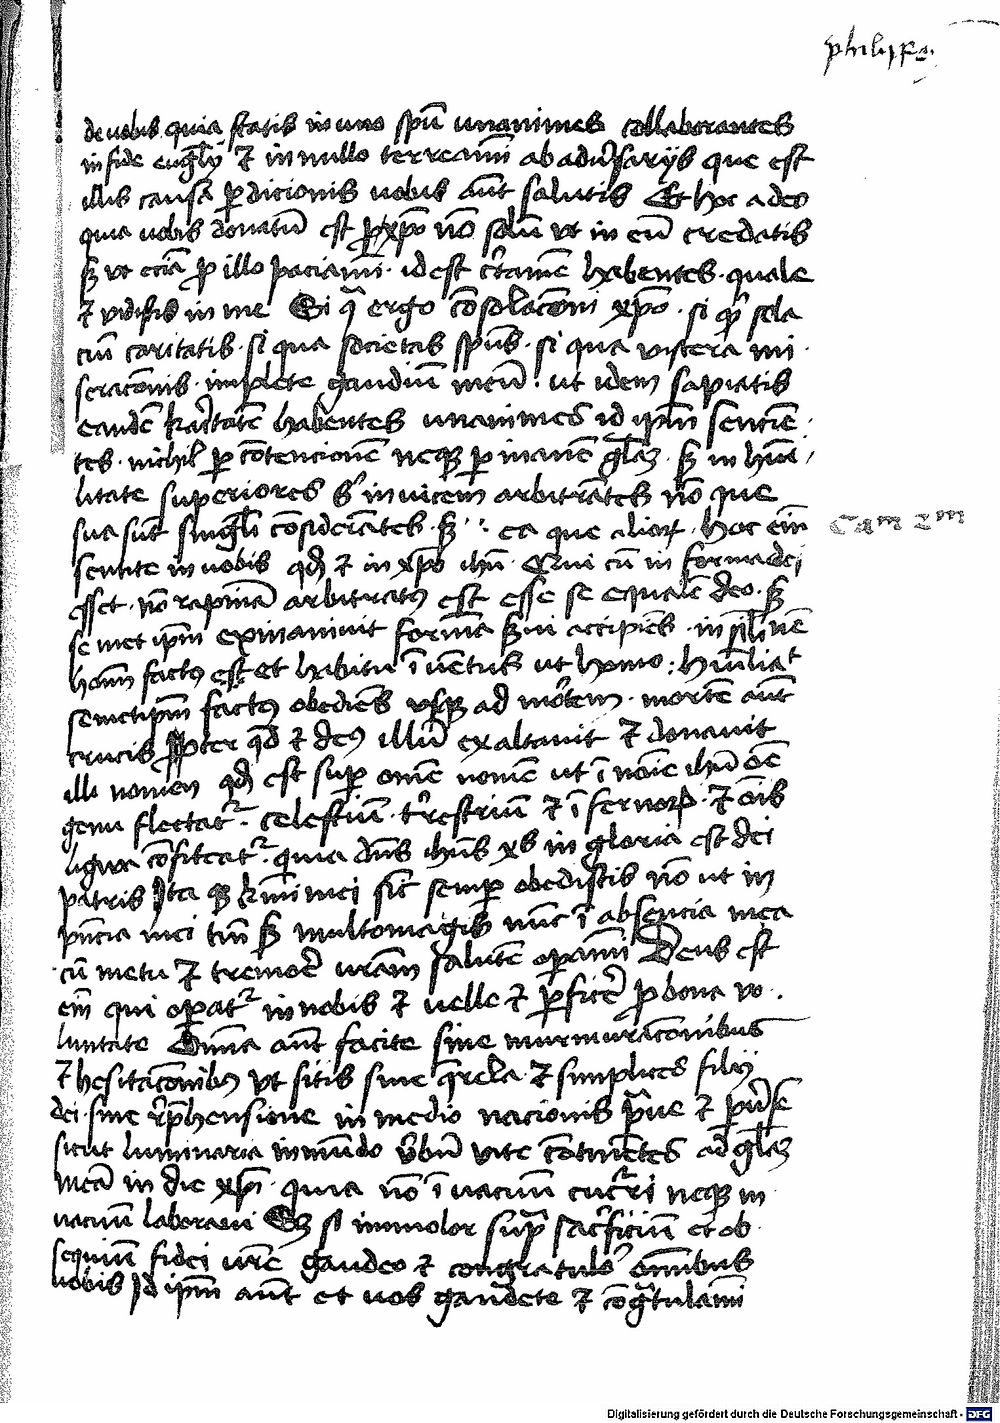 philipen
de uobis quia statis in uno spū unanimes collaborantes
in fide eugˡȳ ⁊ in nullo terreamī ab adūsarijs que est
illis causa ꝑdicionis uobis aūt salutis Et hoc a deo
quia uobis donatū est ꝓ xp̄o nō solū vt in eū credatis
sꝫ vt eciā ꝓ illo paciamī · id est c̄tamē habentes · quale
⁊ vidistis in me Si qª ergo cōsolacōni xp̄o · si qͥ sola
ciū caritatis · si qua societas spūs · si qua viscera mi ·
seracōnis · implete gaudiū meū · ut idem sapiatis
eandē kaˀitatē habentes unanimes id ip̄m sencīe ·
tes · nichil ꝑ cōtencionē neqꝫ ꝑ inanē glaꝫ · sꝫ in hūi
litate superiores sˀ inuicem arbitrātes nō que
sua sūt singˡi cōsiderātes · sꝫ · ea que alioꝝ · hoc eīm
Cam 2m
sentite in uobis qḋ ⁊ in xp̄o ihū · Qui cū in forma dei
esset · nō rapinā arbitratꝰ est esse se equalē deo · sꝫ
se met ip̄m exinaniuit formā sˀui accipiēs · in siˡinē
hoīm factꝰ est Et habitu īuentus ut homo : humliaᵗ
semetip̄m factus obediēs vsqꝫ ad mōtem · mortē aūt
crucis ꝓpter qd̄ ⁊ deꝰ illū exaltauit ⁊ donauit
illi nomen qḋ est suꝑ omē nomē ut ī noīe ihū oē
genu flectatˀ · celestiū · tˀrestriū ⁊ īfernoꝝ · ⁊ oīs
ligwa cōfiteatˀ · quia dn̄s ihūs xp̄s in gloria est dei
patris Ita qꝫ kˀmi mei sic̄ semꝑ obedistis nō ut in
pn̄cia mei tm̄ sꝫ multomagis nūc ī absencia mea
cū metu ⁊ tremoē uram̄ salutē oꝑamī Deus est
eīm qui oꝑatˀ in nobis ⁊ uelle ⁊ ꝑficē ꝓ bona uo ·
luntate Omīa aūt facite sine murmuracōnibus
⁊ hesitacōnibꝰ vt sitis sine qˀrela · ⁊ simplices filij
dei · sine rˀp̄hensione in medio nacionis pªue ⁊ ꝑūse
sicut luminaria in mūdo v̄bū vite cōtinētes ad glaꝫ
meā in die xp̄i · quia nō ī vacuū cucˀri neqꝫ in
vacuū laboraui Sꝫ si immolor supª sacˀficiū et ob ·
sequiū fidei ure gaudeo ⁊ congratuloˀ omībus
uobis Id ip̄m aūt et uos gaudete ⁊ cōgªtulamī
Digitalisierung gefördert durch die Deutsche Forschungsgemeinschaft - DFG